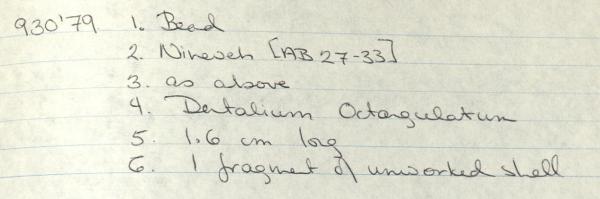 930'79 1. Bead
2. Nineveh [AB 27-33]
3. as above
4. Dentalium Octangulatum
5. 1.6 cm long
6. 1 fragment of unworked shell